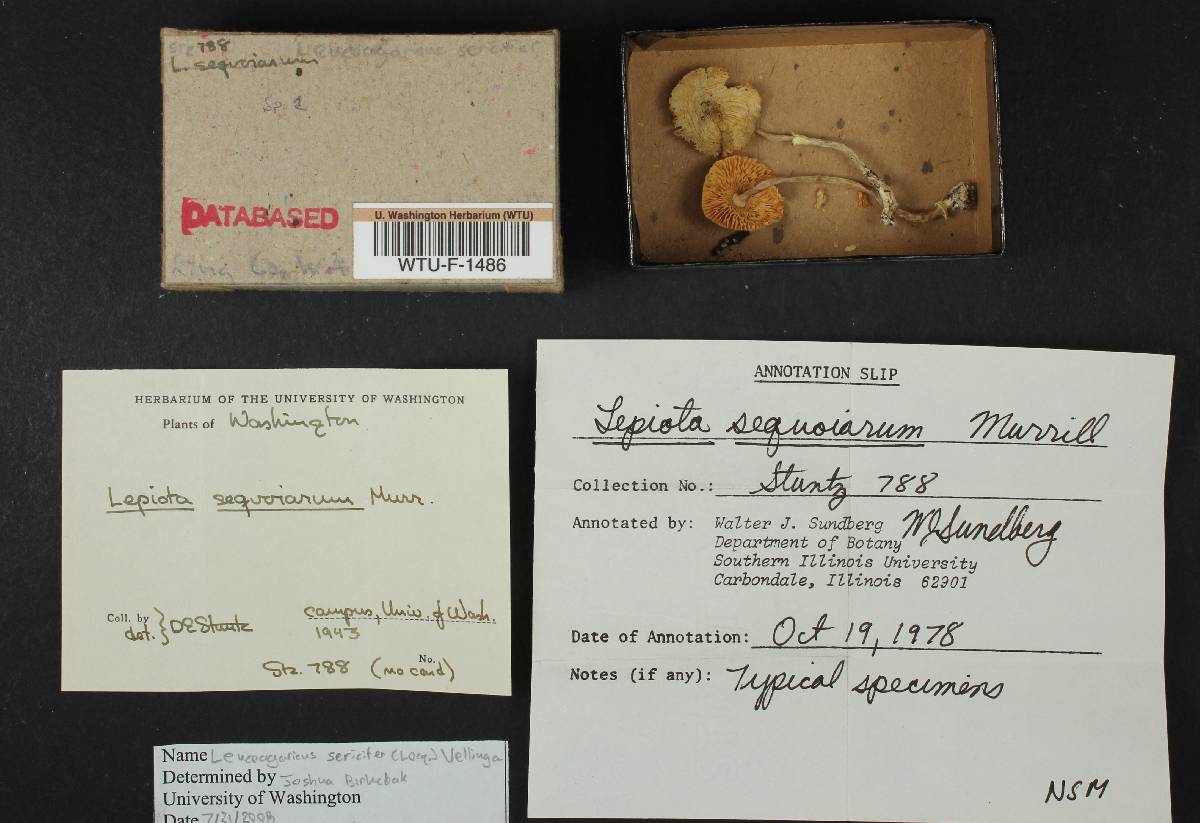 Stz 788 Leucoagaricus sericifer
L. sequoiarum
Sp. 2
DATABASED
U. Washington Herbarium (WTU)
WTU-F-1486
King Co, WA
HERBARIUM OF THE UNIVERSITY OF WASHINGTON
Plants of Washington
Lepiota sequoiarum Murr.
Coll. by
det. } DEStuntz
campus, Univ. of Wash.
1943
No.
Stz. 788 (no card)
ANNOTATION SLIP
Lepiota sequoiarum Murrill
Collection No.: Stuntz 788
Annotated by: Walter J. Sundberg WJSundberg
Department of Botany
Southern Illinois University
Carbondale, Illinois 62901
Date of Annotation: Oct 19, 1978
Notes (if any): Typical specimens
NSM
Name Leucoagaricus sericifer (Locq.) Vellinga
Determined by Joshua Birkebak
University of Washington
Date 7/21/2008